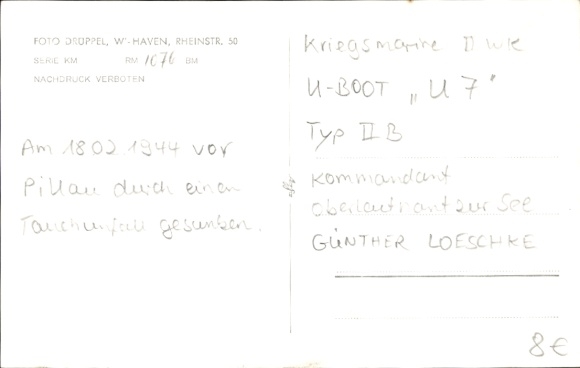 FOTO DRÜPPEL, W'-HAVEN, RHEINSTR. 50
SERIE KM RM 1676 BM
NACHDRUCK VERBOTEN
Am 18.02.1944 vor
Pillau durch einen
Tauchunfall gesunken.
Kriegsmarine II WK
U-BOOT „U 7"
Typ II B
Kommandant
Oberleutnant zur See
GÜNTHER LOESCHKE
8 €